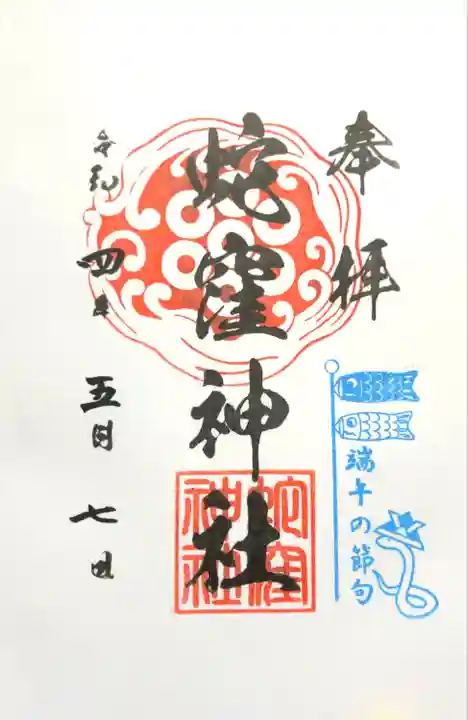 奉拝
蛇窪神社
蛇窪
神社
端午の節句
令和四年五月七日